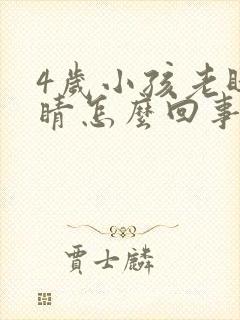 4歲小孩老眨
睛怎麼回事
賈士麟